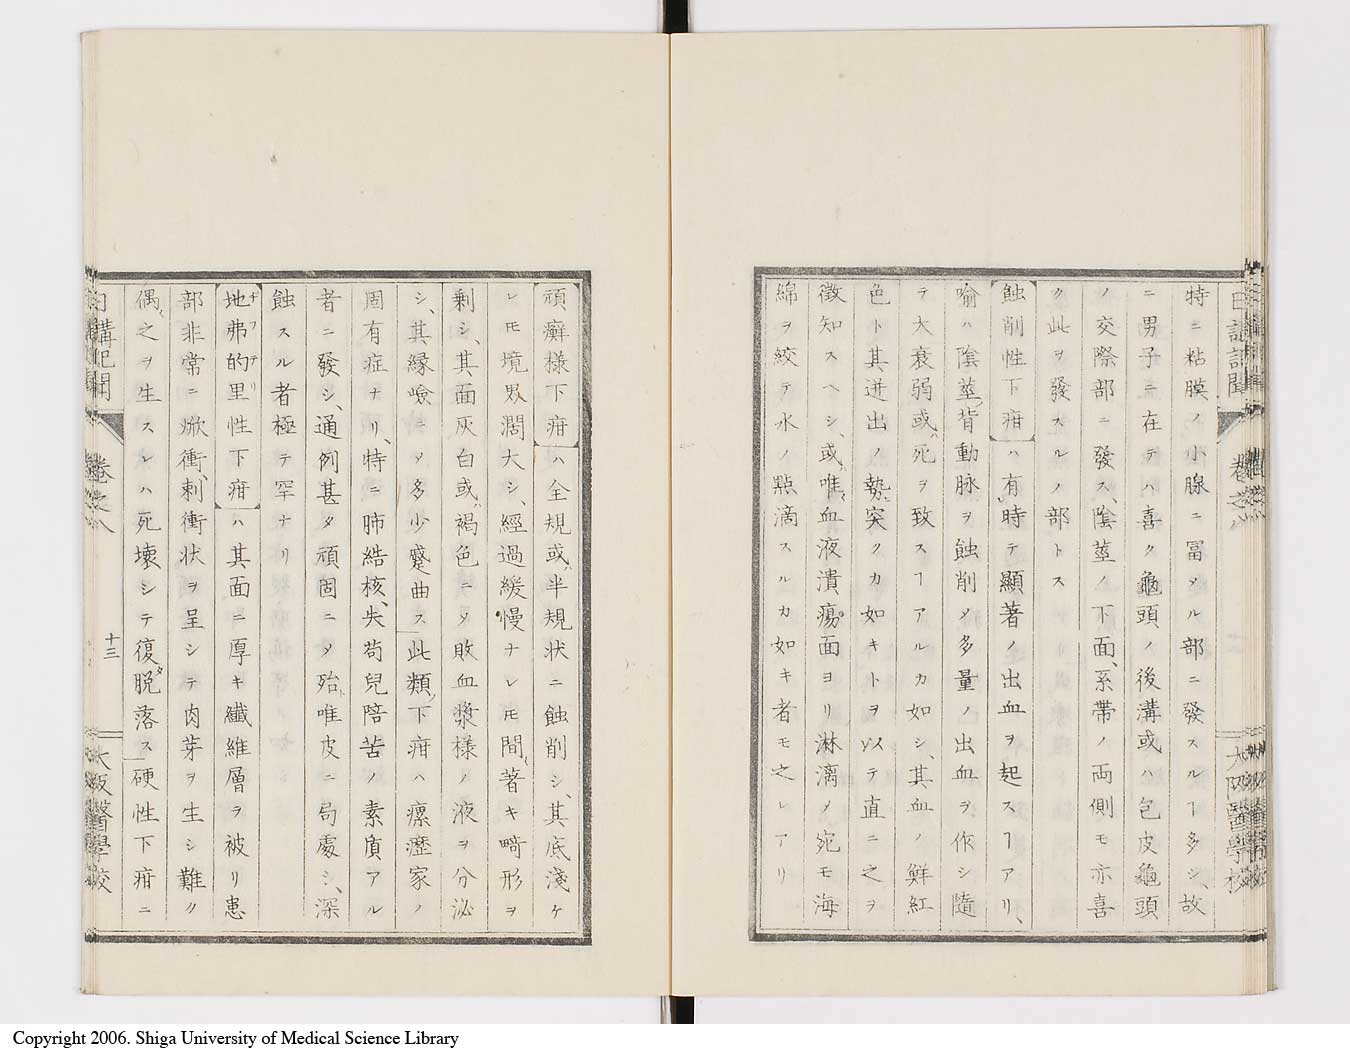 日講記聞 卷之八 大阪醫學校
特ニ粘膜ノ小腺ニ冨メル部ニ發スルヿ多シ、故
ニ男子ニ在テハ喜ク龜頭ノ後溝或ハ包皮龜頭
ノ交際部ニ發ス、陰莖ノ下面、系帶ノ両側モ亦喜
ク此ヲ發スルノ部トス
蝕削性下疳ハ有時テ顯著ノ出血ヲ起スヿアリ、
喻ハ陰莖背動脉ヲ蝕削メ多量ノ出血ヲ作シ隨
テ大衰弱或ハ死ヲ致スヿアルカ如シ、其血ノ鮮紅
色ト其迸出ノ勢突クカ如キトヲ以テ直ニ之ヲ
徴知スヘシ、或ハ唯血液潰瘍面ヨリ淋漓メ宛モ海
綿ヲ絞テ水ノ點滴スルカ如キ者モ之レアリ
頑癬様下疳ハ全規或ハ半規状ニ蝕削シ、其底淺ケ
レモ境界濶大シ、經過緩慢ナレモ間著キ畸形ヲ
剩シ、其面灰白或ハ褐色ニメ敗血漿様ノ液ヲ分泌
シ、其縁嶮ニメ多少蹙曲ス此類下疳ハ瘰癧家ノ
固有症ナリ、特ニ肺結核、失苟兒陪苦ノ素質アル
者ニ發シ、通例甚タ頑固ニメ殆ト唯皮ニ局處シ、深
蝕スル者極テ罕ナリ
地弗的里性下疳ハ其面ニ厚キ纖維層ヲ被リ患
ヂフテリ
部非常ニ焮衝、刺衝状ヲ呈シテ肉芽ヲ生シ難ク
偶之ヲ生スレハ死壞シテ復タ脱落ス硬性下疳ニ
日講記聞 卷之八 十三 大阪醫學校
Copyright 2006. Shiga University of Medical Science Library